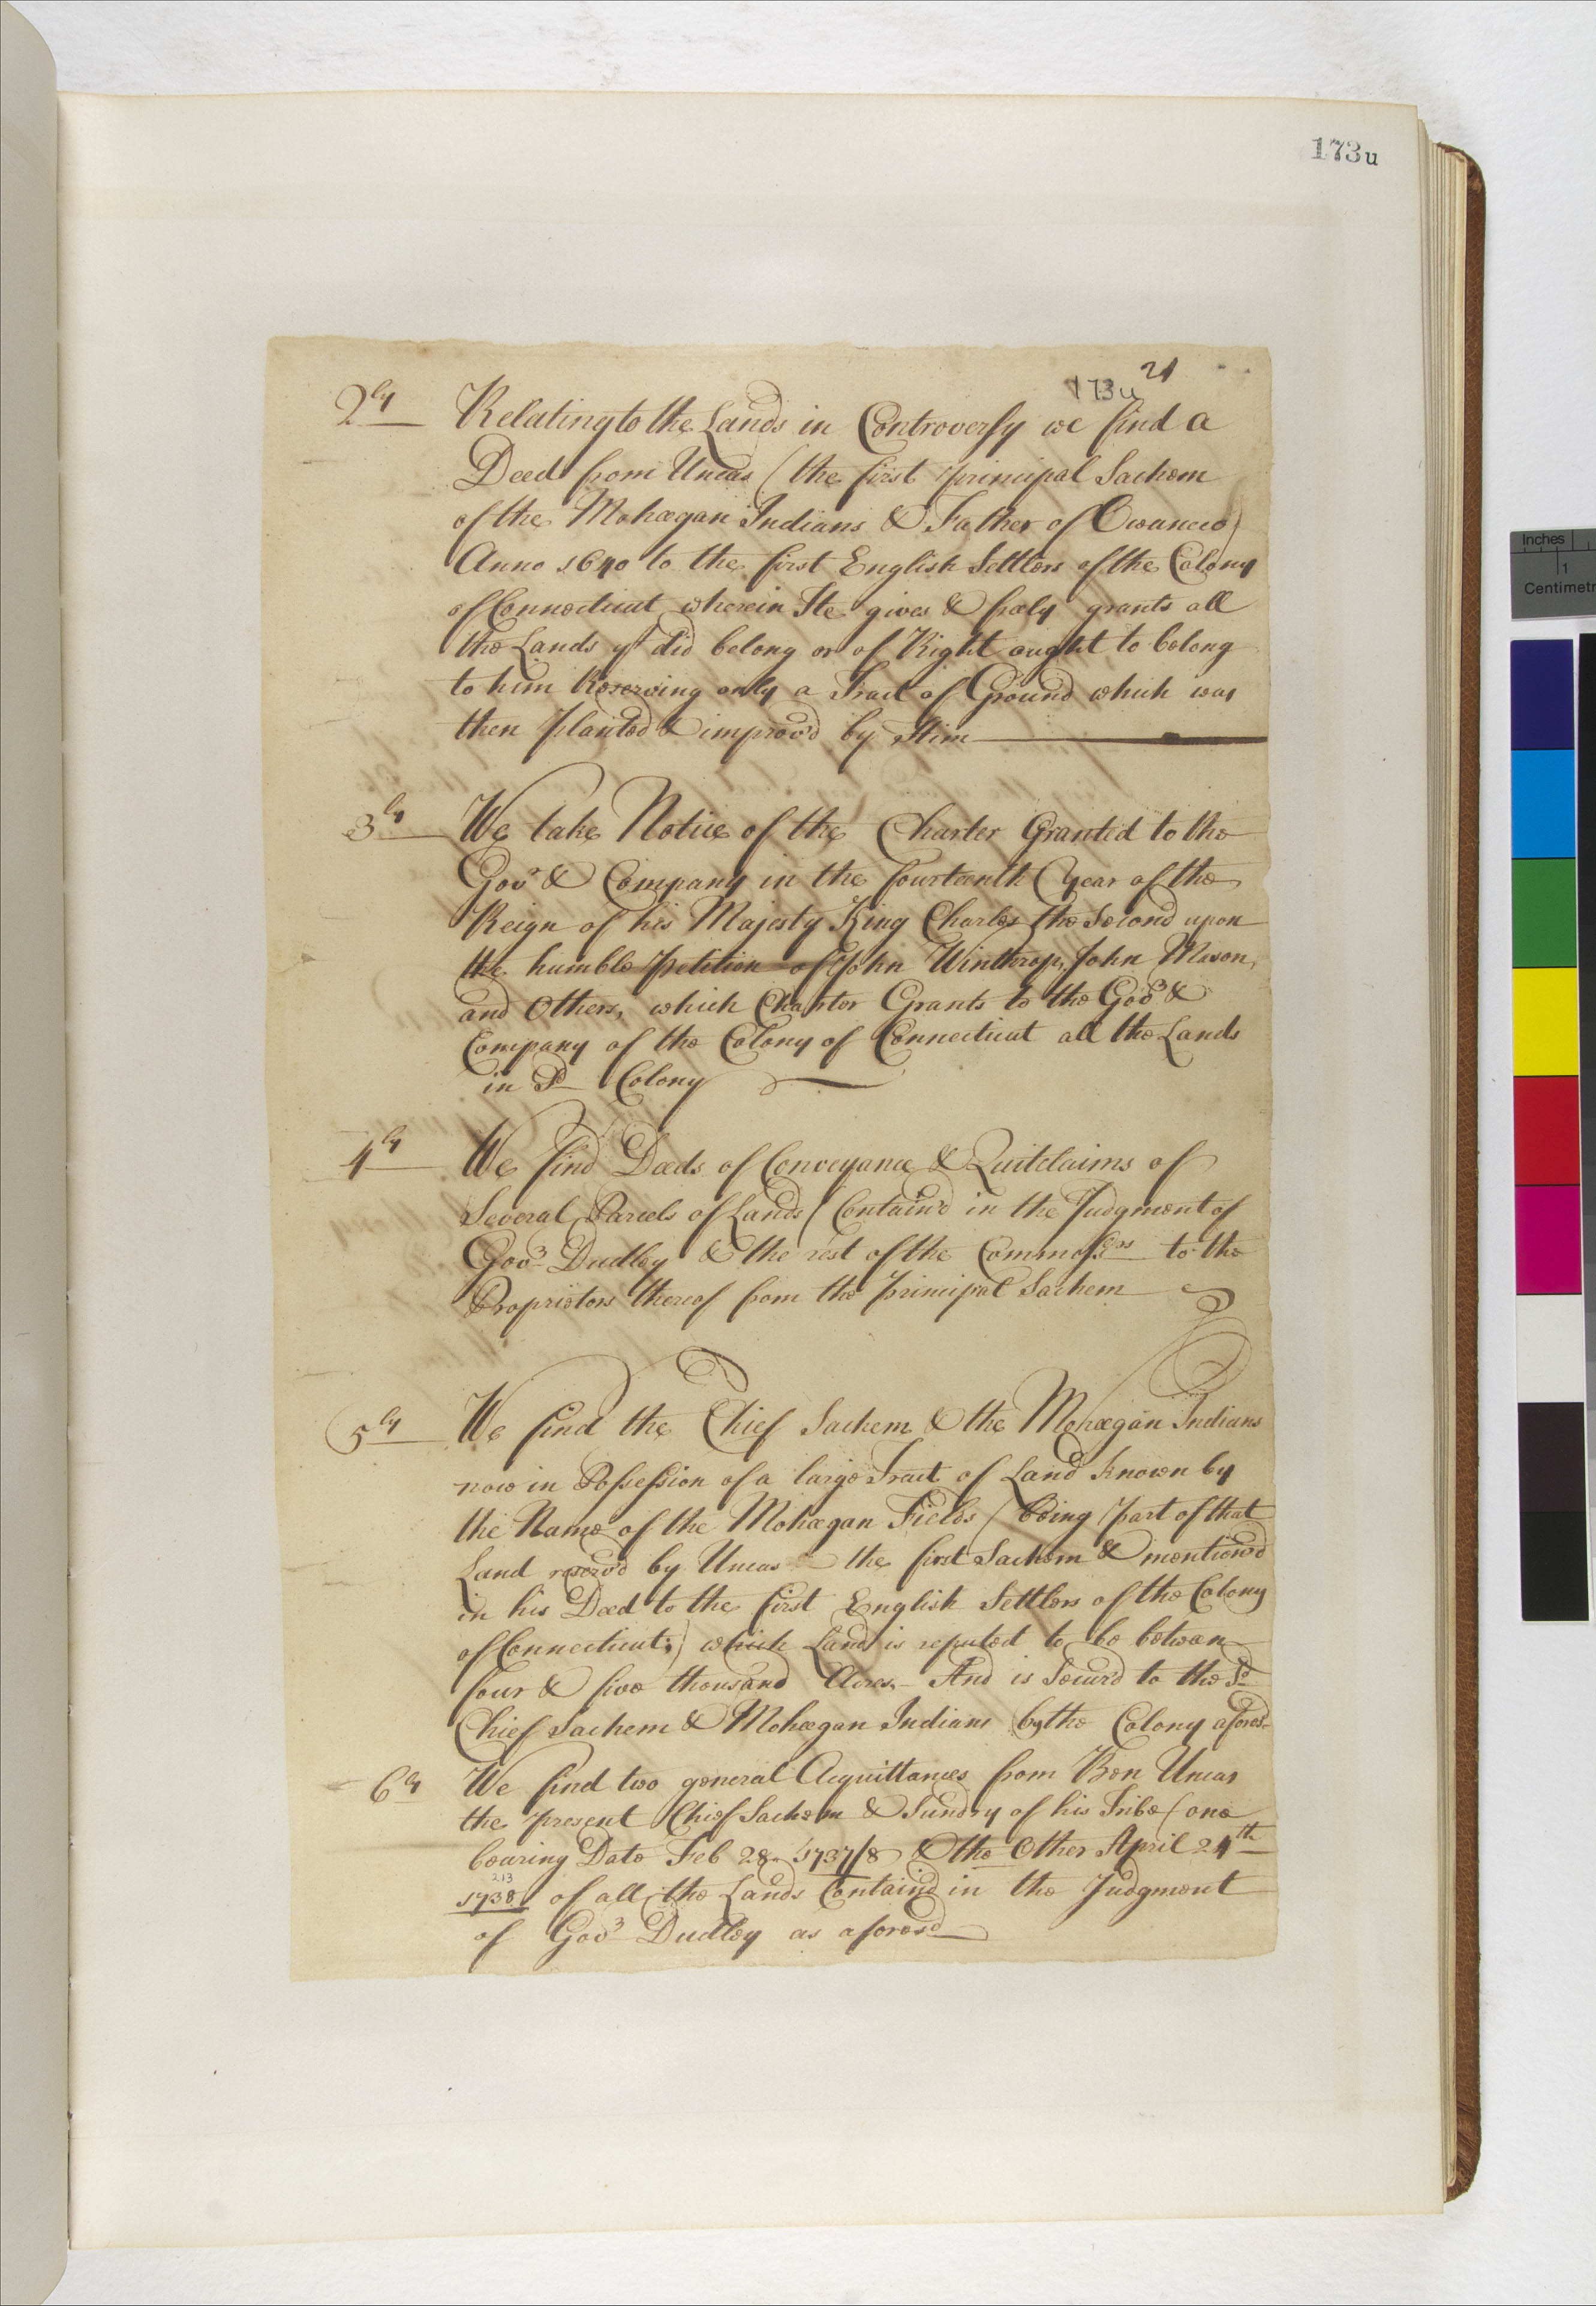 173u
21
173u
2ly Relating to the Lands in Controversy we find a
Deed from Uncas (the first principal Sachem
of the Mohegan Indians & Father of Owaneco)
Anno 1640 to the first English Settlers of the Colony
of Connecticut wherein He gives & freely grants all
the Lands yt did belong or of Right ought to belong
to him Reserving only a Tract of Ground which was
then planted & improv'd by Him
3ly We take Notice of the Charter Granted to the
Govr & Company in the fourteenth Year of the
Reign of his Majesty King Charles the Second upon
the humble petition of John Winthrop, John Mason,
and Others, which Charter Grants to the Govr &
Company of the Colony of Connecticut all the Lands
in Sd Colony
4ly We find Deeds of Conveyance & Quitclaims of
Several Parcels of Lands (Contain'd in the Judgment of
Govr Dudley & the rest of the Commissrs to the
Proprietors thereof from the principal Sachem
5ly We find the Chief Sachem & the Mohegan Indians
now in Possession of a large Tract of Land known by
the Name of the Mohegan Fields (being part of that
Land reserv'd by Uncas the first Sachem & mention'd
in his Deed to the first English Settlers of the Colony
of Connecticut;) which Land is reputed to be between
four & five thousand Acres. And is Secur'd to the Sd
Chief Sachem & Mohegan Indians by the Colony afores
6ly We find two general Acquittances from Ben Uncas
the present Chief Sachem & Sundry of his Tribe (one
bearing Date Feb 28 1737/8 & the Other April 24th
213
1738) of all the Lands Contain'd in the Judgment
of Govr Dudley as aforesd
Inches
1
Centimetr